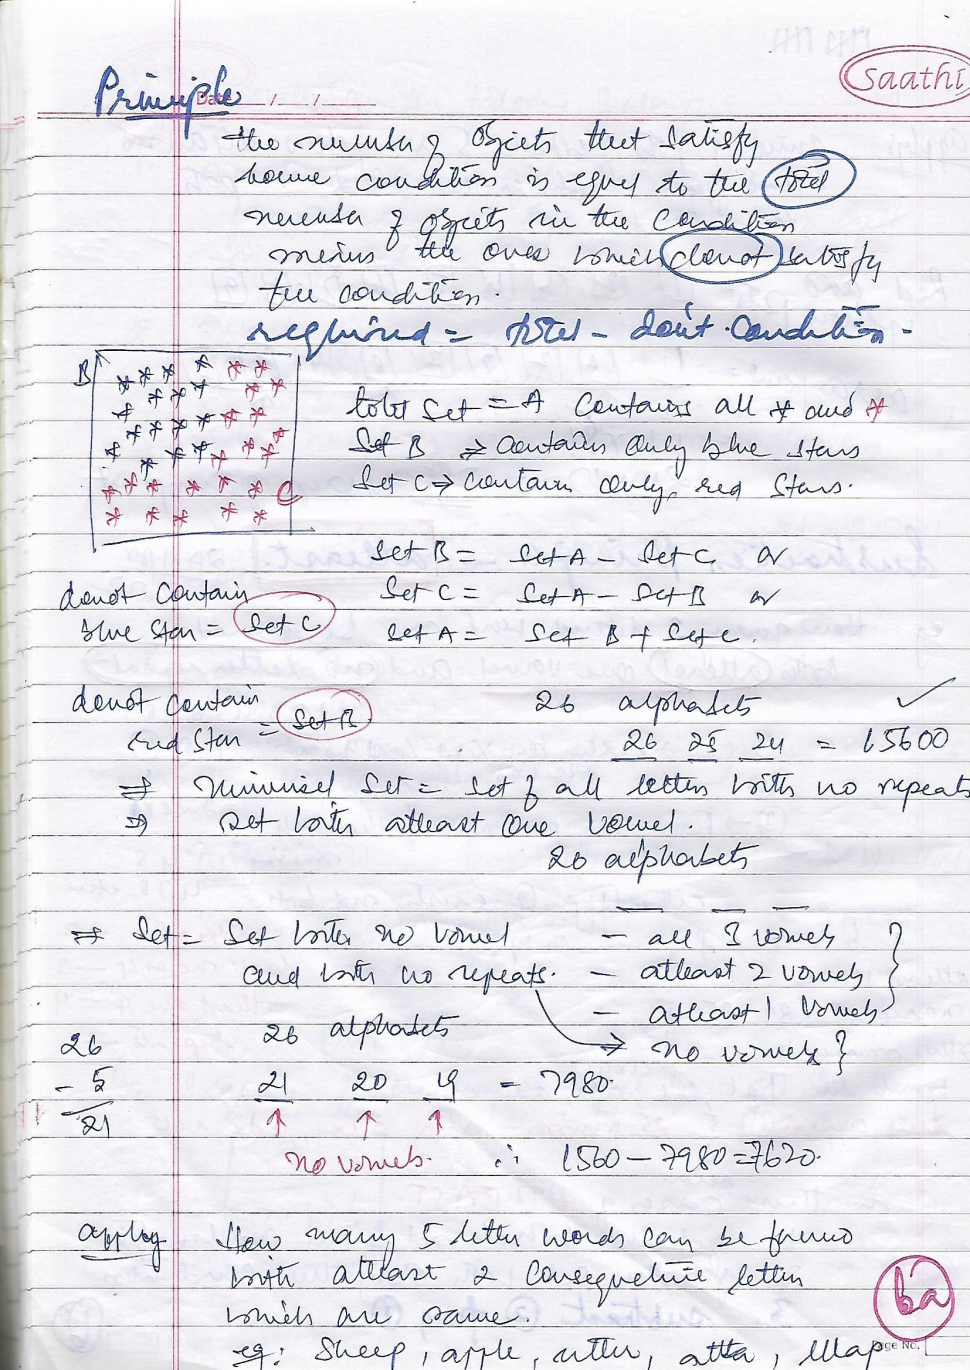 saathi
Principle
Date / /
the number of objects that satisfy
some condition is equal to the total
number of objects in the condition
minus the ones which donot satisfy
the condition.
required = total - don't condition -
B
total set = A contains all * and *
Set B ⇒ contains only blue stars
C
Set C ⇒ contain only red stars.
Set B = Set A - Set C or
donot contain
Set C = Set A - Set B or
blue star = Set C
Set A = Set B + Set C.
donot contain
red star = Set B
26 alphabets ✓
26 25 24 = 15600
⇒ Universal Set = set of all letter with no repeats
⇒ set with atleast one vowel.
26 alphabets
⇒ Set = Set with no vowel - all 3 vowels
and with no repeats. - atleast 2 vowels
- atleast 1 vowels
26 alphabets ⇒ no vowels }
26
- 5
21
21 20 19 = 7980.
no vowels. ∴ 1560 - 7980 = 7620.
apply How many 5 letter words can be
with atleast 2 consequetive letter
which are same.
6a
Page No.
eg: Sheep, apple, utter, atta,